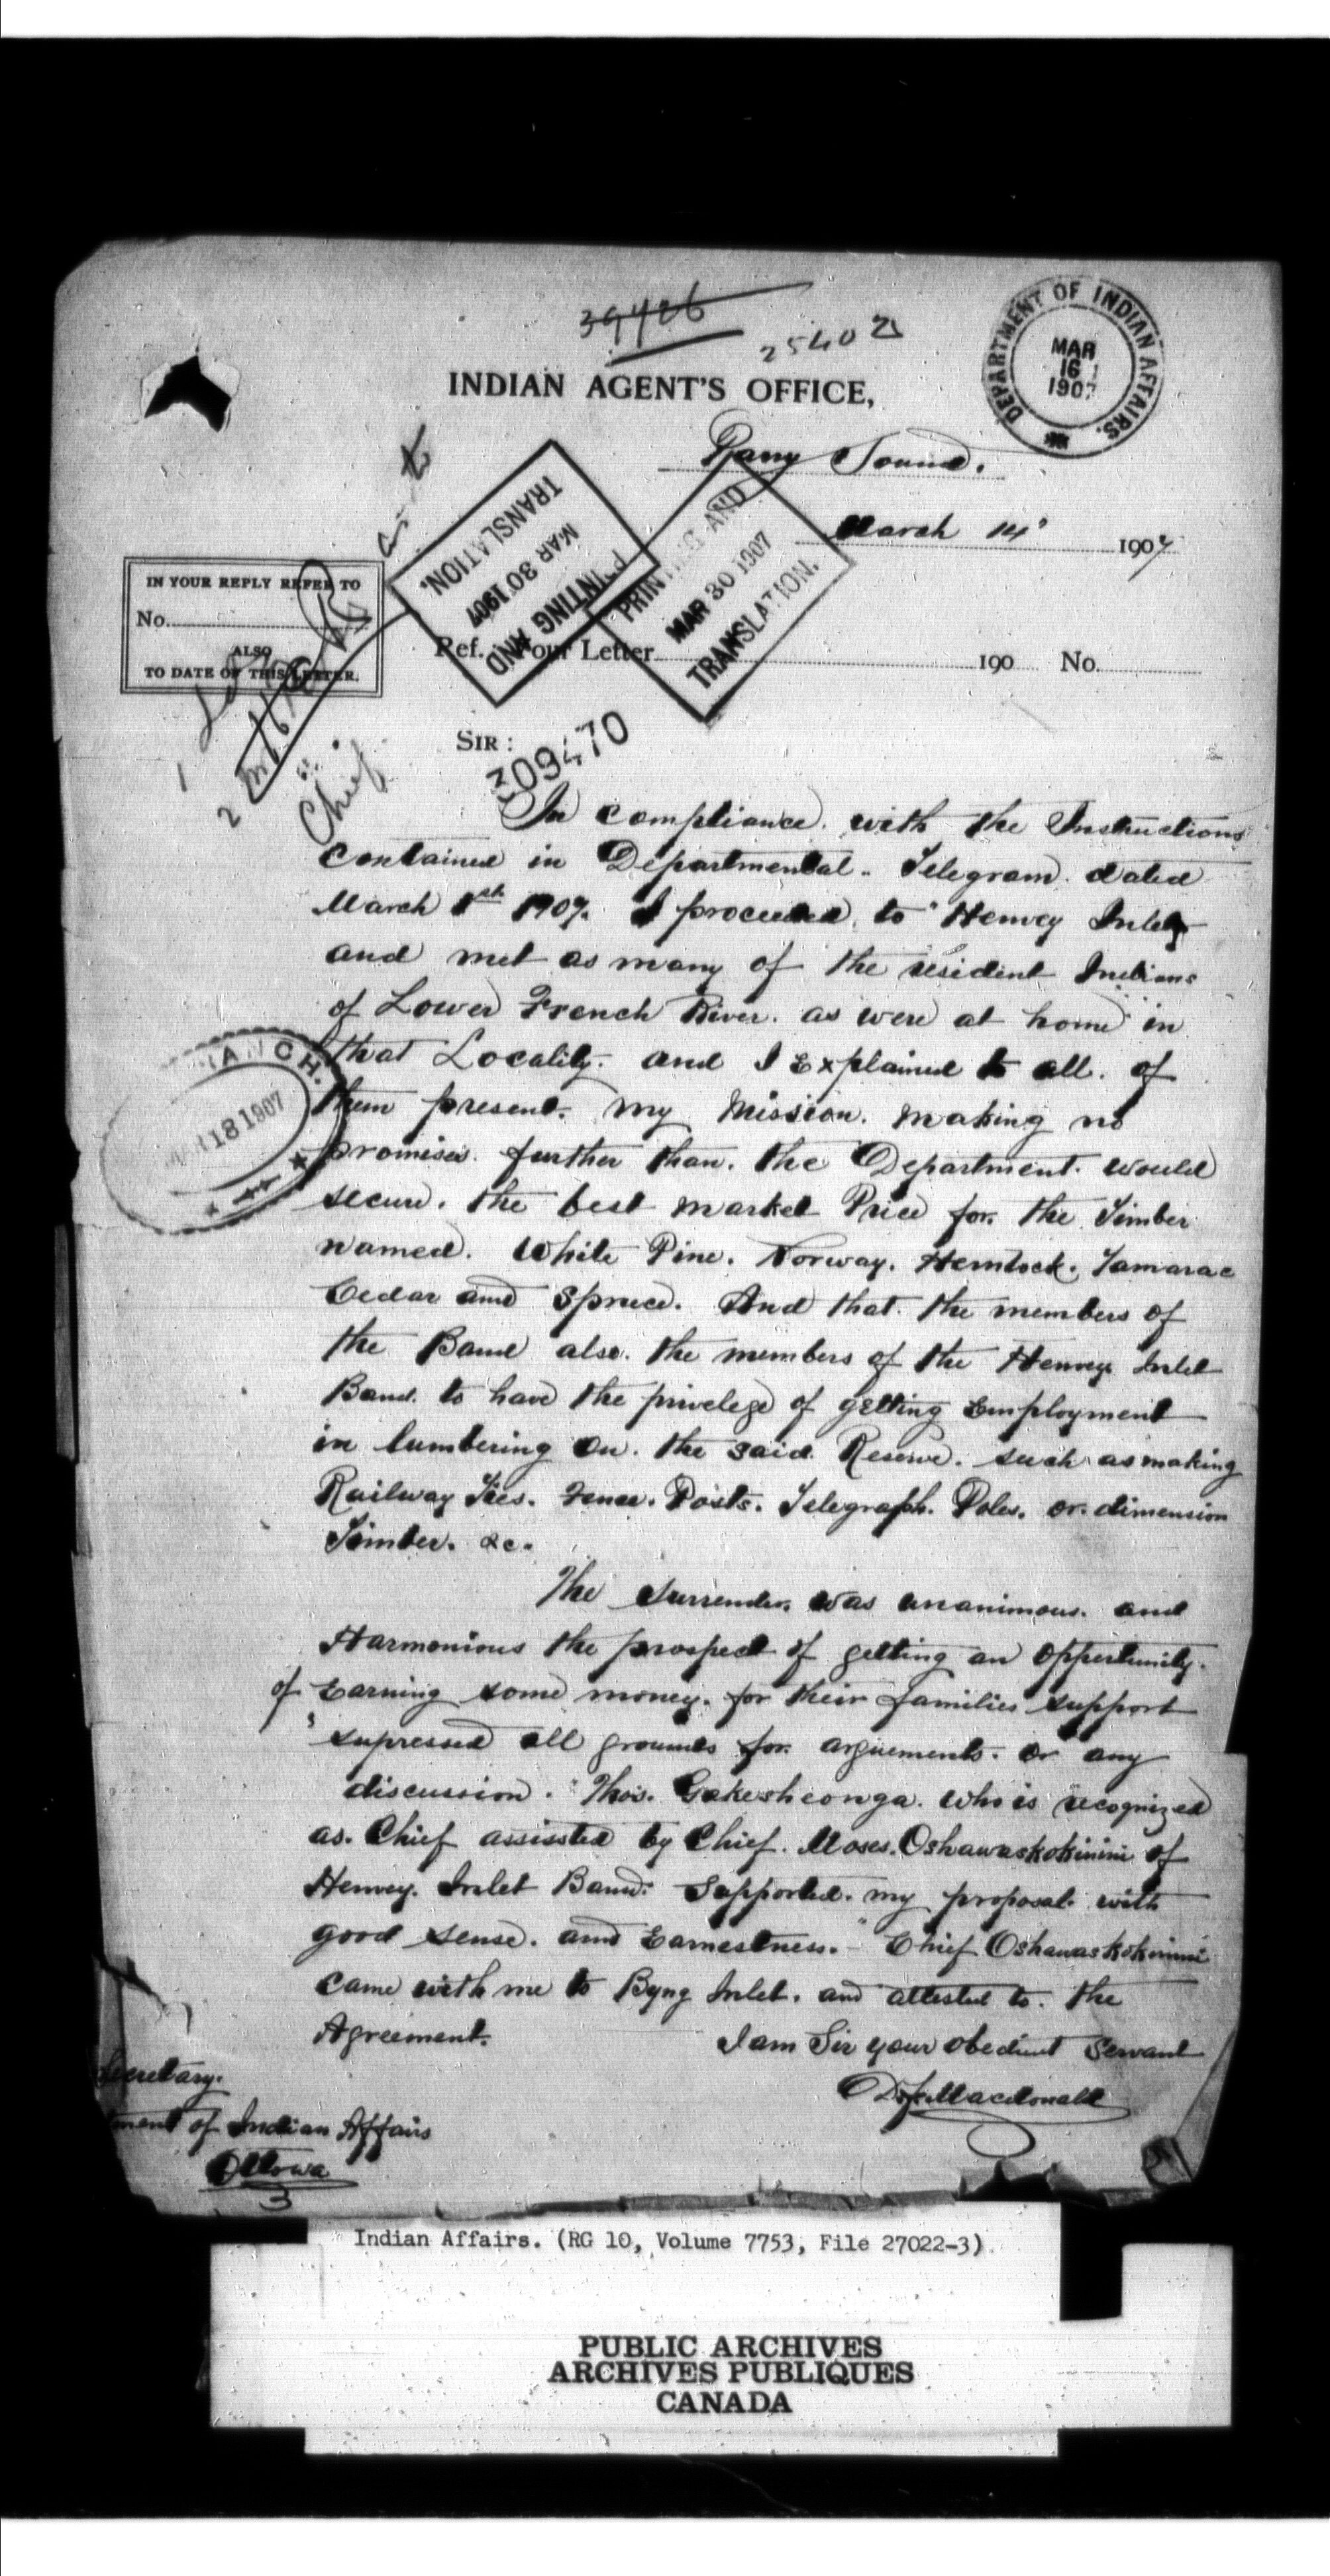 39426
25402
INDIAN AGENT'S OFFICE,
DEPARTMENT OF INDIAN AFFAIRS.
MAR
16
1907
Parry Sound.
March 14" 1907
PRINTING AND
MAR 30 1907
TRANSLATION.
PRINTING AND
MAR 30 1907
TRANSLATION.
IN YOUR REPLY REFER TO
No.
ALSO
TO DATE OF THIS LETTER.
Ref. Your Letter 190 No.
1
2
Chief
SIR:
309470
In compliance. with the Instructions
contained in Departmental. Telegram. dated
March 1st 1907. I proceeded. to "Henvey Inlet,
and met as many of the resident Indians
of Lower French River. as were at home in
that Locality. and I Explained to all. of
them present. my Mission. making no
promises. further than. the Department. would
secure. the best market Price for. the Timber
named. White Pine. Norway. Hemlock. Tamarac
Cedar and Spruce. And that. the members of
the Band also. the members of the Henvey Inlet
Band. to have the privelege of getting Employment
in lumbering on. the said. Reserve. such as making
Railway Ties. Fence. Posts. Telegraph. Poles. or dimension
Timber. &c.
The Surrender. was unanimous. and
Harmonious the prospect of getting an opportunity.
of Earning some money. for their families support
supressed all grounds for. arguements. or any
discussion. Thos. Gakesheonga. who is recognized
as. Chief assissted by Chief. Moses. Oshawaskokinini of
Henvey. Inlet Band. Supported. my proposal. with
good sense. and Earnestness. - Chief Oshawaskokinini
came with me to Byng Inlet. and attested to. the
Agreement.
I am Sir your obedient Servant
D.F. Macdonald
ANCH.
MAR 18 1907
Secretary.
ment of Indian Affairs
Ottawa
3
Indian Affairs. (RG 10, Volume 7753, File 27022-3)
PUBLIC ARCHIVES
ARCHIVES PUBLIQUES
CANADA